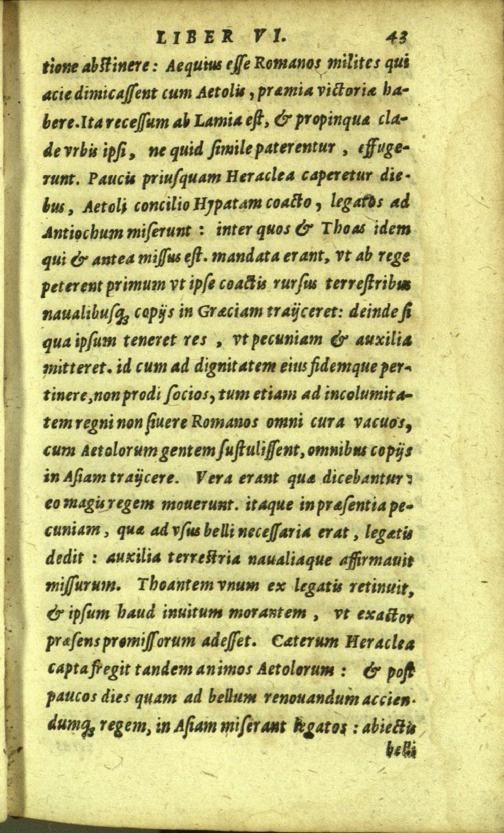 LIBER VI. 43
tione abstinere: Aequius esse Romanos milites qui
acie dimicassent cum Aetolis, præmia victoriæ ha-
bere. Ita recessum ab Lamia est, & propinqua cla-
de vrbis ipsi, ne quid simile paterentur, effuge-
runt. Paucis priusquam Heraclea caperetur die-
bus, Aetoli concilio Hypatam coacto, legatos ad
Antiochum miserunt: inter quos & Thoas idem
qui & antea missus est. mandata erant, vt ab rege
peterent primum vt ipse coactis rursus terrestribus
naualibusq; copijs in Græciam traijceret: deinde si
qua ipsum teneret res, vt pecuniam & auxilia
mitteret. id cum ad dignitatem eius fidemque per-
tinere, non prodi socios, tum etiam ad incolumita-
tem regni non siuere Romanos omni cura vacuos,
cum Aetolorum gentem sustulissent, omnibus copijs
in Asiam traijcere. Vera erant quæ dicebantur:
eo magis regem mouerunt. itaque in præsentia pe-
cuniam, quæ ad vsus belli necessaria erat, legatis
dedit: auxilia terrestria naualiaque affirmauit
missurum. Thoantem vnum ex legatis retinuit,
& ipsum haud inuitum morantem, vt exactor
præsens promissorum adesset. Cæterum Heraclea
capta fregit tandem animos Aetolorum: & post
paucos dies quam ad bellum renouandum accien-
dumq; regem, in Asiam miserant legatos: abiectis
belli